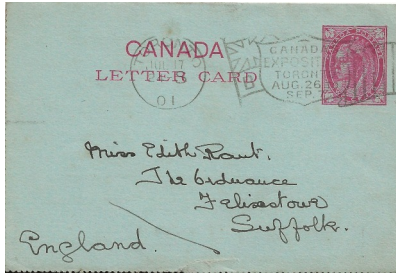 CANADA
LETTER CARD
JUL 17
01
CANADA
EXPOSIT
TORONT
AUG. 26
SEP. 7
Miss Edith Raut.
The Ordnance
Felixstowe
Suffolk.
England.